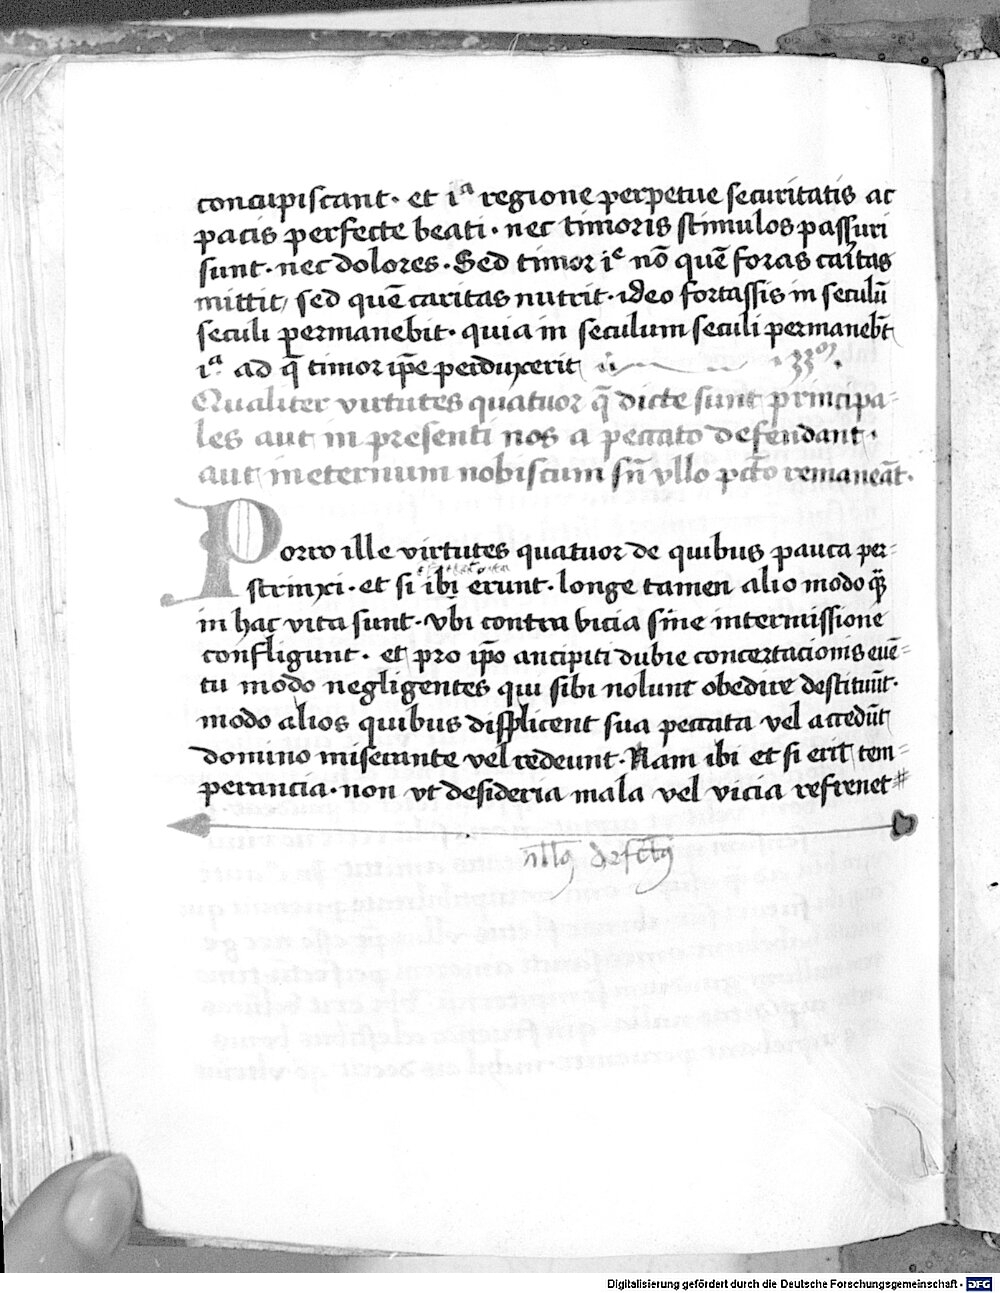 concupiscant· et iᵃ regione perpetue securitatis ac
pacis perfecte beati· nec timoris stimulos passuri
sunt· nec dolores· Sed timor iᵉ nō quē foras caritas
mittit, sed quē caritas nutrit· ideo fortassis in seculū
seculi permanebit· quia in seculum seculi permanebt̄
iᵃ· ad q̄ timor ip̄e perduxerit
Qualiter virtutes quatuor q̄ dicte sunt principa=
les aut in presenti nos a peccato defendant·
aut in eternum nobiscum sn̄ vllo pctō remaneāt·
Porro ille virtutes quatuor de quibus pauca per=
strinxi· et si ibi erunt· longe tamen alio modo qꝫ̄
in hac vita sunt· vbi contra vicia sine intermissione
confligunt· et pro ip̄o ancipiti dubie concertacionis euē=
tu modo negligentes qui sibi nolunt obedire destituūt·
modo alios quibus displicent sua peccata vel accedūt
domino miserante vel redeunt· Nam ibi et si erit tem=
perancia· non vt desideria mala vel vicia refrenet #
Digitalisierung gefördert durch die Deutsche Forschungsgemeinschaft - DFG